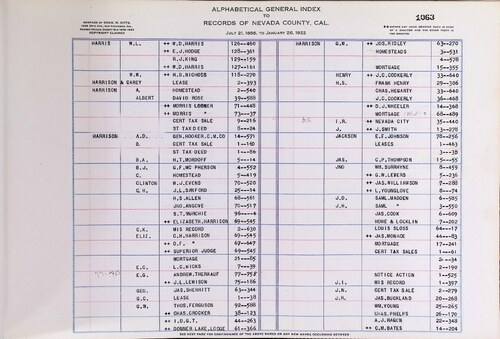 ALPHABETICAL GENERAL INDEX
TO
RECORDS OF NEVADA COUNTY, CAL.
JULY 21, 1856, TO JANUARY 26, 1922
COPYRIGHT CLAIMED
1063
HARRIS W.L. ++ W.D.HARRIS 126-460 HARRISON G.W. ++ JOS.RIDLEY 63-270
++ E.J.HODGE 128-361 HOMESTEADS 3-531
R.J.KING 129-159 4-578
++ W.D.HARRIS 129-141 MORTGAGE 15-355
W.W. ++ H.D.NICHOSS 118-270 HENRY ++ J.C.COCKERLY 33-640
HARRISON & CAREY LEASE 3-393 H.S. FRANK HENRY 29-386
HARRISON A. HOMESTEAD 2-540 CHAS.HEGARTY 33-640
ALBERT DAVID ROSE 39-588 J.C.COCKERLY 36-468
++ MORRIS LOBNER 71-448 ++ D.J.WHEELER 14-368
++ MORRIS " 73-37 MORTGAGE
CERT TAX SALE 9-216 I.R. ++ NEVADA CITY 35-440
ST TAX DEED 8-24 J. ++ J.SMITH 13-278
HARRISON A.D. GEN.HOOKER C.M.CO 14-571 JACKSON E.F.JOHNSON 78-256
B. CERT TAX SALE 1-140 LEASES 1-463
ST TAX DEED 1-86 3-38
B.A. H.T.MORDOFF 5-14 JAS. C.P.THOMPSON 15-55
B.J. G.F.MC PHERSON 4-552 JNO WM.SURRAYNE 8-459
C. HOMESTEAD 5-419 ++ G.W.LEWERS 5-236
CLINTON W.J.EVENS 70-520 ++ JAS.WILLIAMSON 7-288
C.H. J.L.SANFORD 25-14 ++ L.YOUNGBLOE 8-74
H.S.ALLEN 68-561 J.D. SAML.MADDEN 6-585
JUD.ANGOVE 70-517 J.H. SAML " 6-550
S.T.MURCHIE 96-4 JAS.COOK 6-609
++ ELIZABETH.HARRISON 69-545 HOWE & LOCKLIN 7-202
C.K. MIS RECORD 2-630 LOUIS SLOSS 64-17
ELIZ. C.H.HARRISON 69-545 ++ JAS.MONACE 83
++ C.F. " 69-647 MORTGAGE 17-241
++ SUPERIOR JUDGE 69-545 CERT TAX SALES 1-61
MORTGAGE 21-85 2-34
E.C. L.C.WICKS 7-39 2-190
E.G. ANDREW.THERKAUF 77-75 NOTICE ACTION 1-525
++ J.L.LEWISON 75-186 J.I. MIS RECORD 1-397
GEO. JAS.SHERRITT 63-14 J.N. CERT TAX SALE 2-279
G.C. LEASE 1-38 J.R. JAS.BUCKLAND 20-268
G.W. THOS.FERGUSON 92-588 WM.YOUNG 25-265
++ CHAS.CROCKER 38-123 CHAS.PHELPS 26-170
++ I.O.G.T. 44-263 A.J.RAGEN 22-340
++ DONNER LAKE.LODGE 61-366 ++ C.M.BATES 14-204